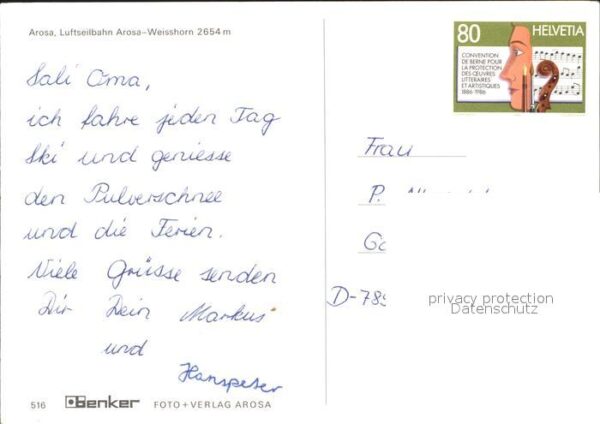 Arosa, Luftseilbahn Arosa-Weisshorn 2654 m
Sali Oma,
ich fahre jeden Tag
Ski und geniesse
den Pulverschnee
und die Ferien.
Viele Grüsse senden
Dir Dein Markus
und
Hanspeter
516 Benker FOTO+VERLAG AROSA
80 HELVETIA
CONVENTION
DE BERNE POUR
LA PROTECTION
DES ŒUVRES
LITTERAIRES
ET ARTISTIQUES
1886-1986
Frau
P.
D-789
privacy protection
Datenschutz